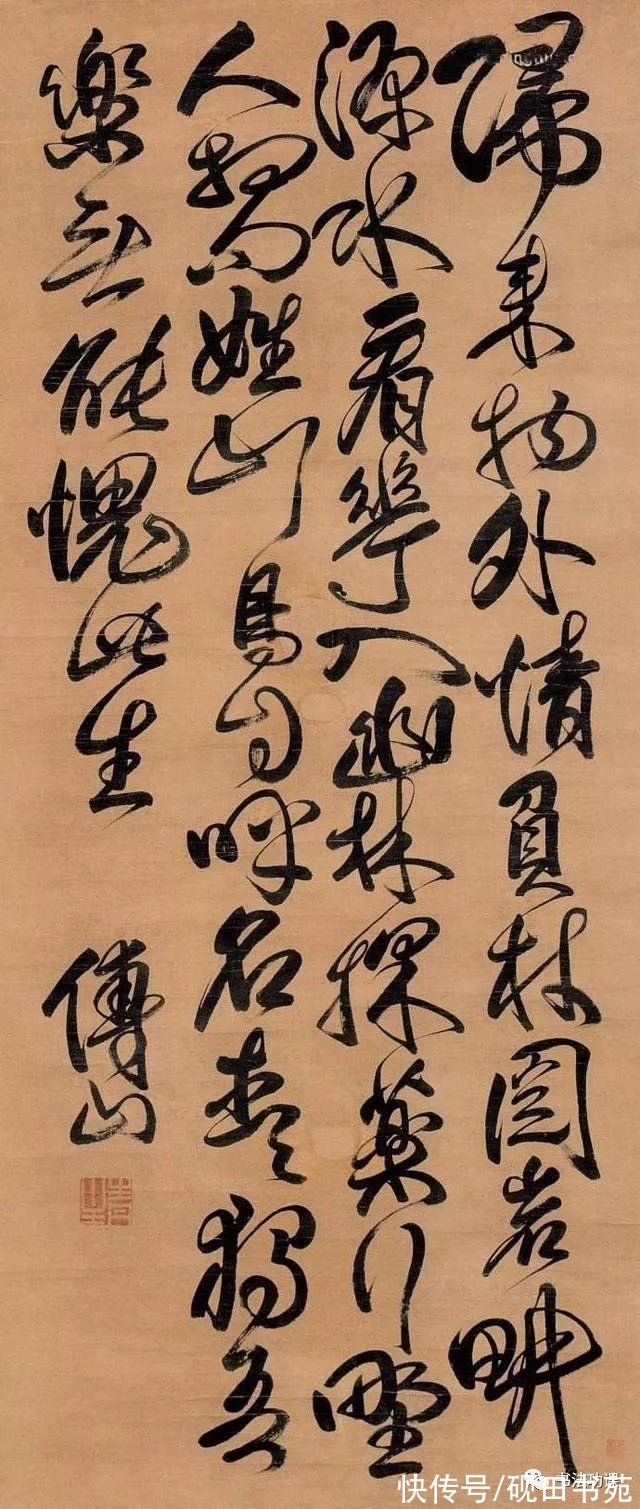 歸来物外情負杖閱岩畊
源水看華入幽林採藥行野
人相問姓山鳥自呼名去去獨吾
樂無能愧此生
傅山
书法功课
快传号/砚田书苑